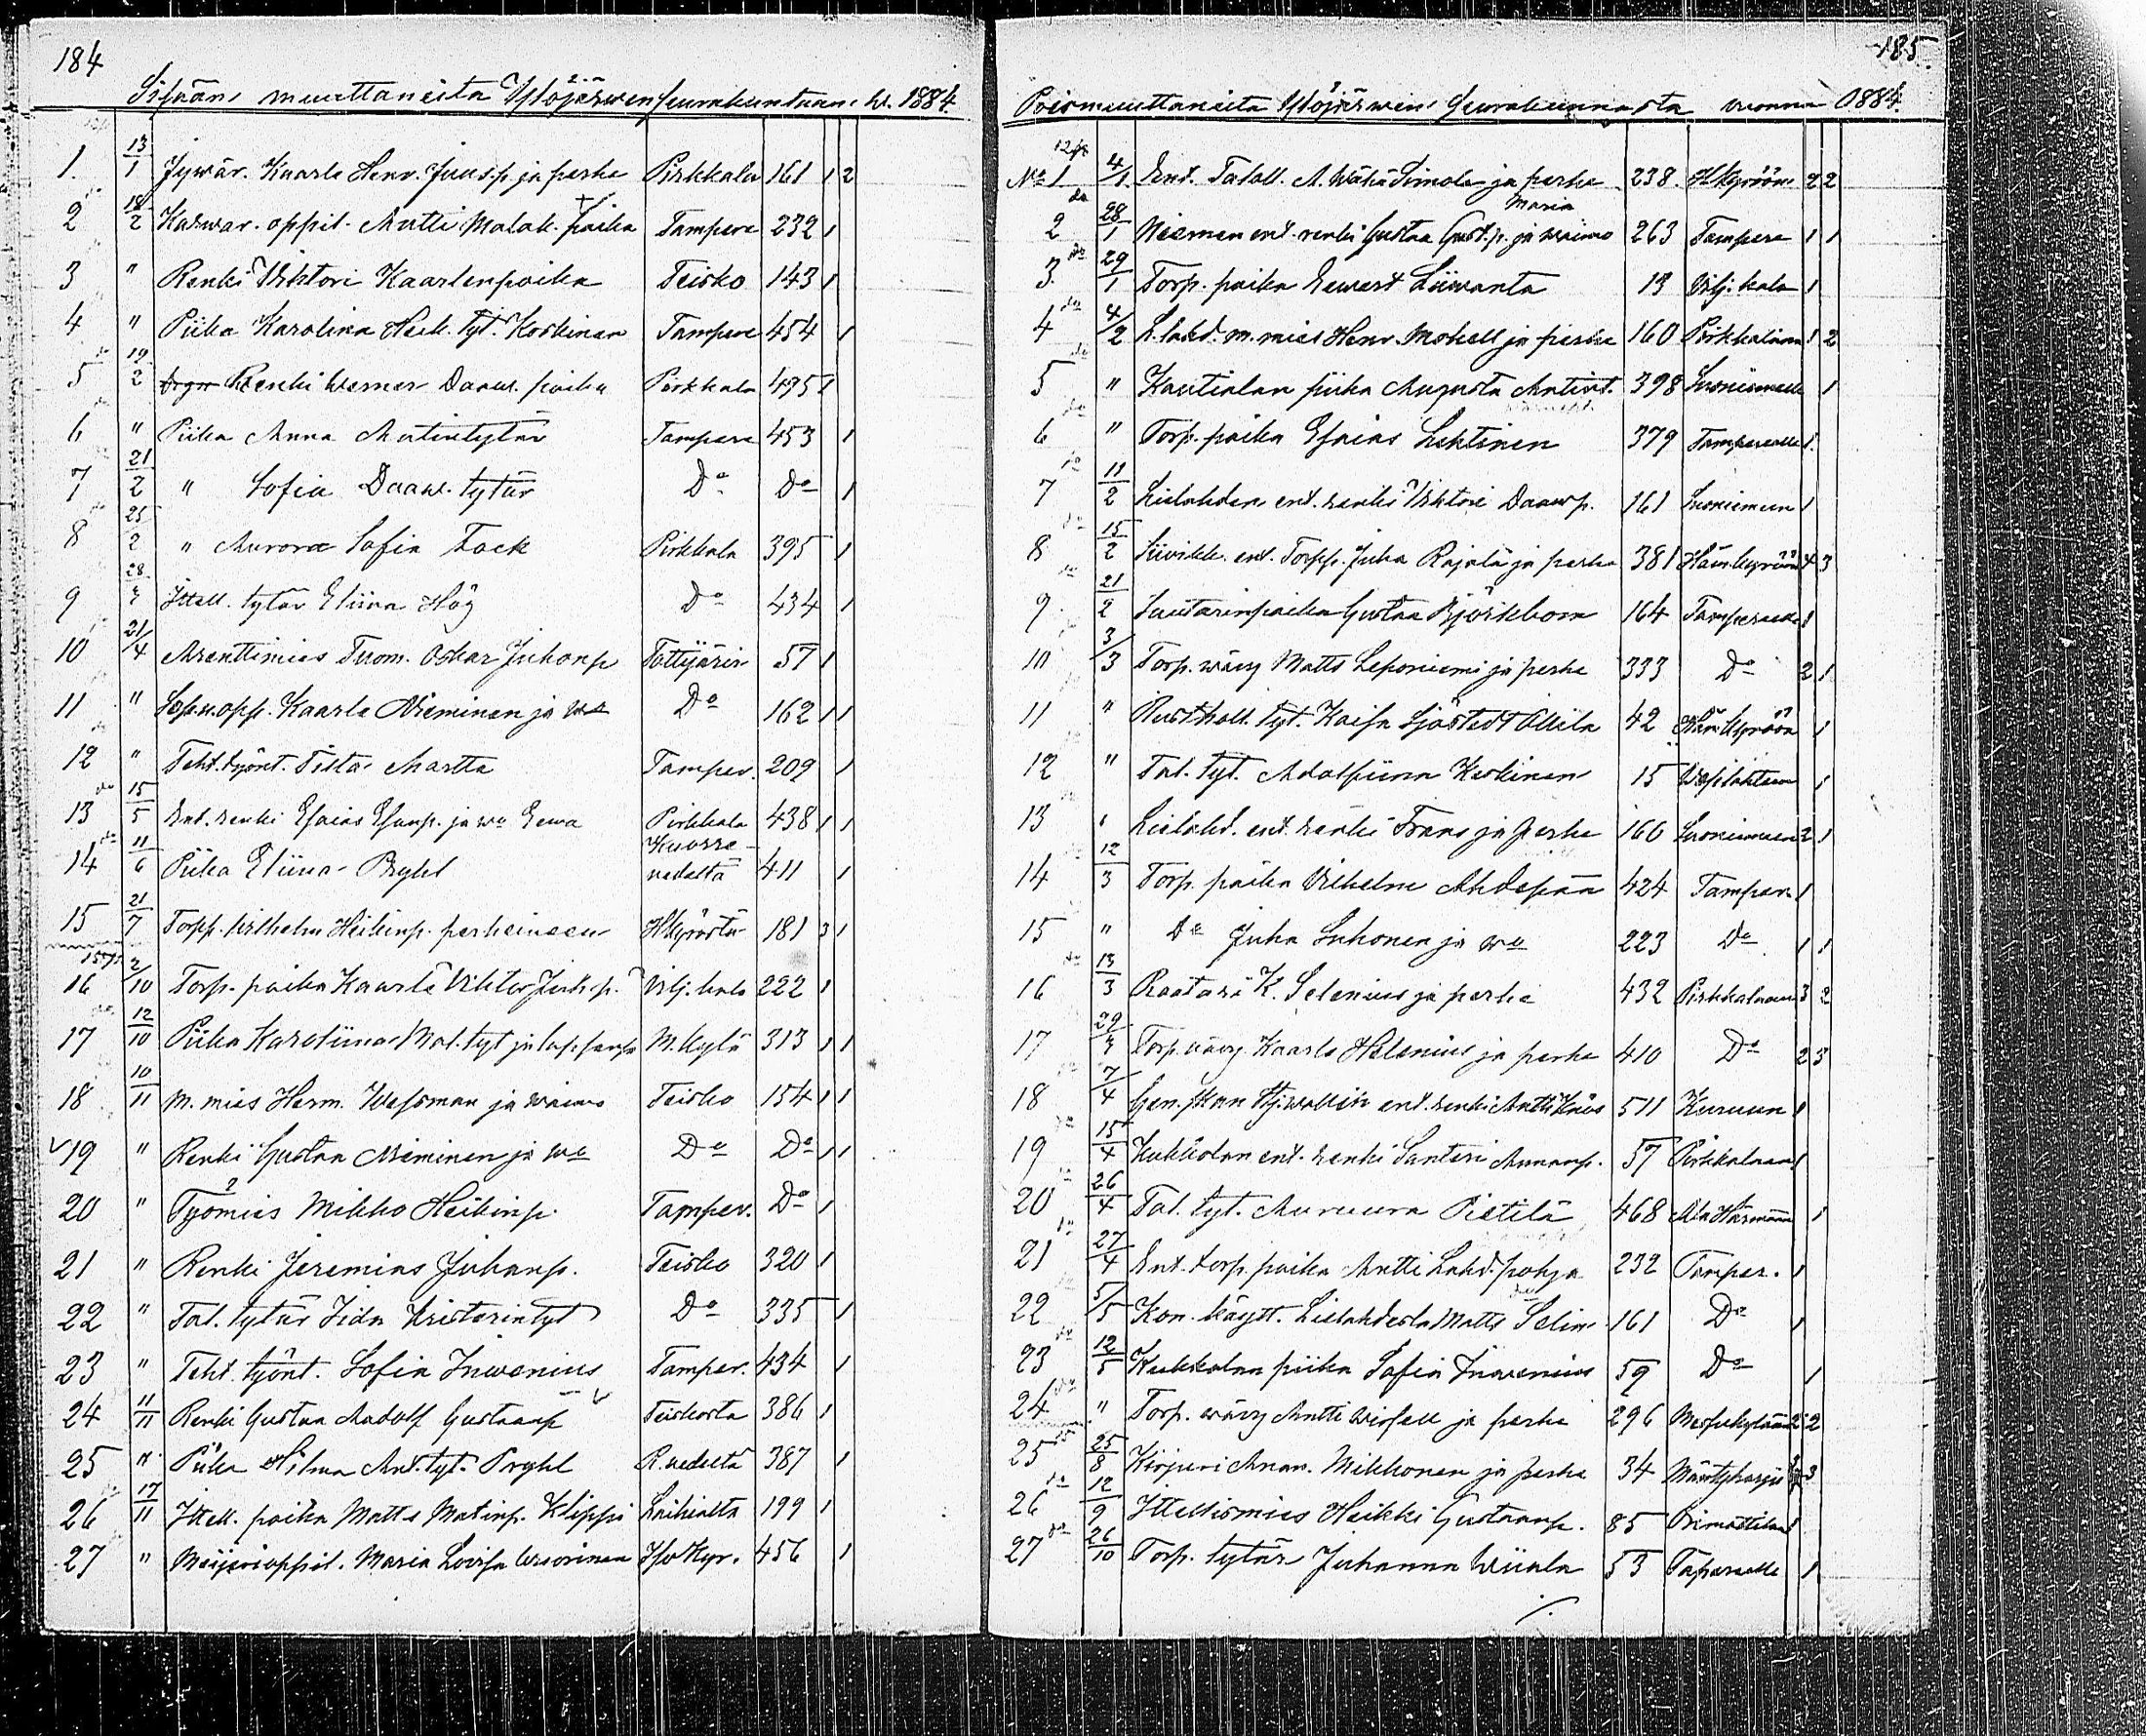 184
Sisään muuttaneita Ylöjärwen seurakuntaan w. 1884
1. 13/1 Jywär. Kaarle Henr. Juusp. ja perhe Pirkkala 161 1 2
2 18/2 Karwar. oppil. Matti Malak. poika Tampere 232 1
3 " Renki Wihtori Kaarlenpoika Teisko 143 1
4 " Piika Karolina Heik. tyt. Koskinen Tampere 454 1
5 19/2 Renki Werner Daaw. poika Pirkkala 435 1
6 " Piika Anna Matintytär Tampere 453 1
7 21/2 " Sofia Daaw. tytär Do Do 1
8 25/2 " Aurora Sofia Fock Pirkkala 395 1
9 28/3 Ittell. tytär Eliina Hög Do 434 1
10 21/4 Arenttimies Tuom. Oskar Juhonp Tottijärvi 57 1
11 " Sep.n.opp. Kaarle Nieminen ja wo Do 162 1 1
12 " Teht. työnt. Fiita Martta Tamper. 209 1
13 15/5 Ent. renki Esaias Esanp. ja wo Eewa Pirkkala 438 1 1
14 11/6 Piika Eliina Prykl Kuorevedeltä 411 1
15 21/7 Torpp. Wilhelm Heikinp. perheineen HKyröstä 181 3 1
16 2/10 Torp. poika Kaarle Viktor Juh. p. Vilj. kala 222 1
17 12/10 Piika Karoliina Mat. tyt ja lapsensa M. kylä 313 1 1
18 10/11 M. mies Herm. Wessman ja waimo Teisko 154 1 1
19 " Renki Gustaa Nieminen ja wo Do Do 1 1
20 " Työmies Mikko Heikinp. Tamper. Do 1
21 " Renki Jeremias Juhanp. Teisko 320 1
22 " Tal. tytär Iida Kristerintyt Do 335 1
23 " Teht. työnt. Sofia Inwenius Tamper. 434 1
24 11/11 Renki Gustaa Aadolf Gustaanp Teiskosta 386 1
25 " Piika Hilma Ant. tyt. Prykl K.vedeltä 387 1
26 17/11 Ittell. poika Matts Matinp. Klippi Laihialta 199 1
27 " Meijerioppil. Maria Lovisa Wuorinen Iso Kyr. 456 1
185
Poismuuttaneita Ylöjärwen Seurakunnasta wuonna 1884.
No 1 4/1 Ent. Taloll. A. Wähä Simola ja perhe 238 HKyröön 2 2
Maria
2 28/1 Niemen ent. renki Gustaa Gust. p. ja waimo 263 Tampere 1 1
3 29/1 Torp. poika Ewert Liiwanta 13 Vilj. kala 1
4 4/2 L.lahd. m. mies Henr. Mokell ja perhe 160 Pirkkalaan 1 2
5 " Kautialan piika Augusta Antint. 398 Suoniemelle 1
6 " Torp. poika Esaias Lehtinen 379 Tampereelle 1
7 11/2 Lielahden ent. renki Wihtori Daawp. 161 Suoniemeen 1
8 15/2 Siivikk. ent. Torpp. Juha Rajala ja perhe 381 Häm.kyröön 4 3
9 21/2 Suutarinpoika Gustaa Björkbom 164 Tampereelle 1
10 3/3 Torp. wäwy Matts Leponiemi ja perhe 333 Do 2 1
11 " Rusthol. tyt. Kaisa Sjöstedt Ollila 42 Häm.kyröön 1
12 " Tal. tyt. Adolfiina Keskinen 15 Wesilahteen 1
13 " Lielahd. ent. renki Frans ja perhe 160 Suoniemeen 2 1
14 12/3 Torp. poika Vilhelm Ahdepää 424 Tamper. 1
15 " Do Juha Luhonen ja wo 223 Do 1 1
16 13/3 Räätäri K. Selenius ja perhe 432 Pirkkalaan 3 2
17 29/3 Torp. wäwy Kaarle Helenius ja perhe 410 Do 2 3
18 7/4 ent. renki Antti 511 Kuruun 1
19 15/4 Kukkolan ent. renki Santeri Amanp. 57 Pirkkalaan 1
20 26/4 Tal. tyt. Auruura Pietilä 468 Ala Härmään 1
21 27/4 Ent. torp. poika Antti Lahd. pohja 232 Tamper. 1
22 5/5 Kon. käytt. Lielahdesta Matts Selin 161 Do 1
23 12/5 Kukkolan piika Sofia Inwenius 59 Do 1
24 " Torp. wäwy Antti ja perhe 296 Messukylään 2 2
25 25/8 Kirjuri Aman. Mikkonen ja perhe 34 Mäntyharju 3
26 12/9 Ittellismies Heikki Gustaanp. 85 1
27 26/10 Torp. tytär Juhanna Wiiala 53 Tapereelle 1